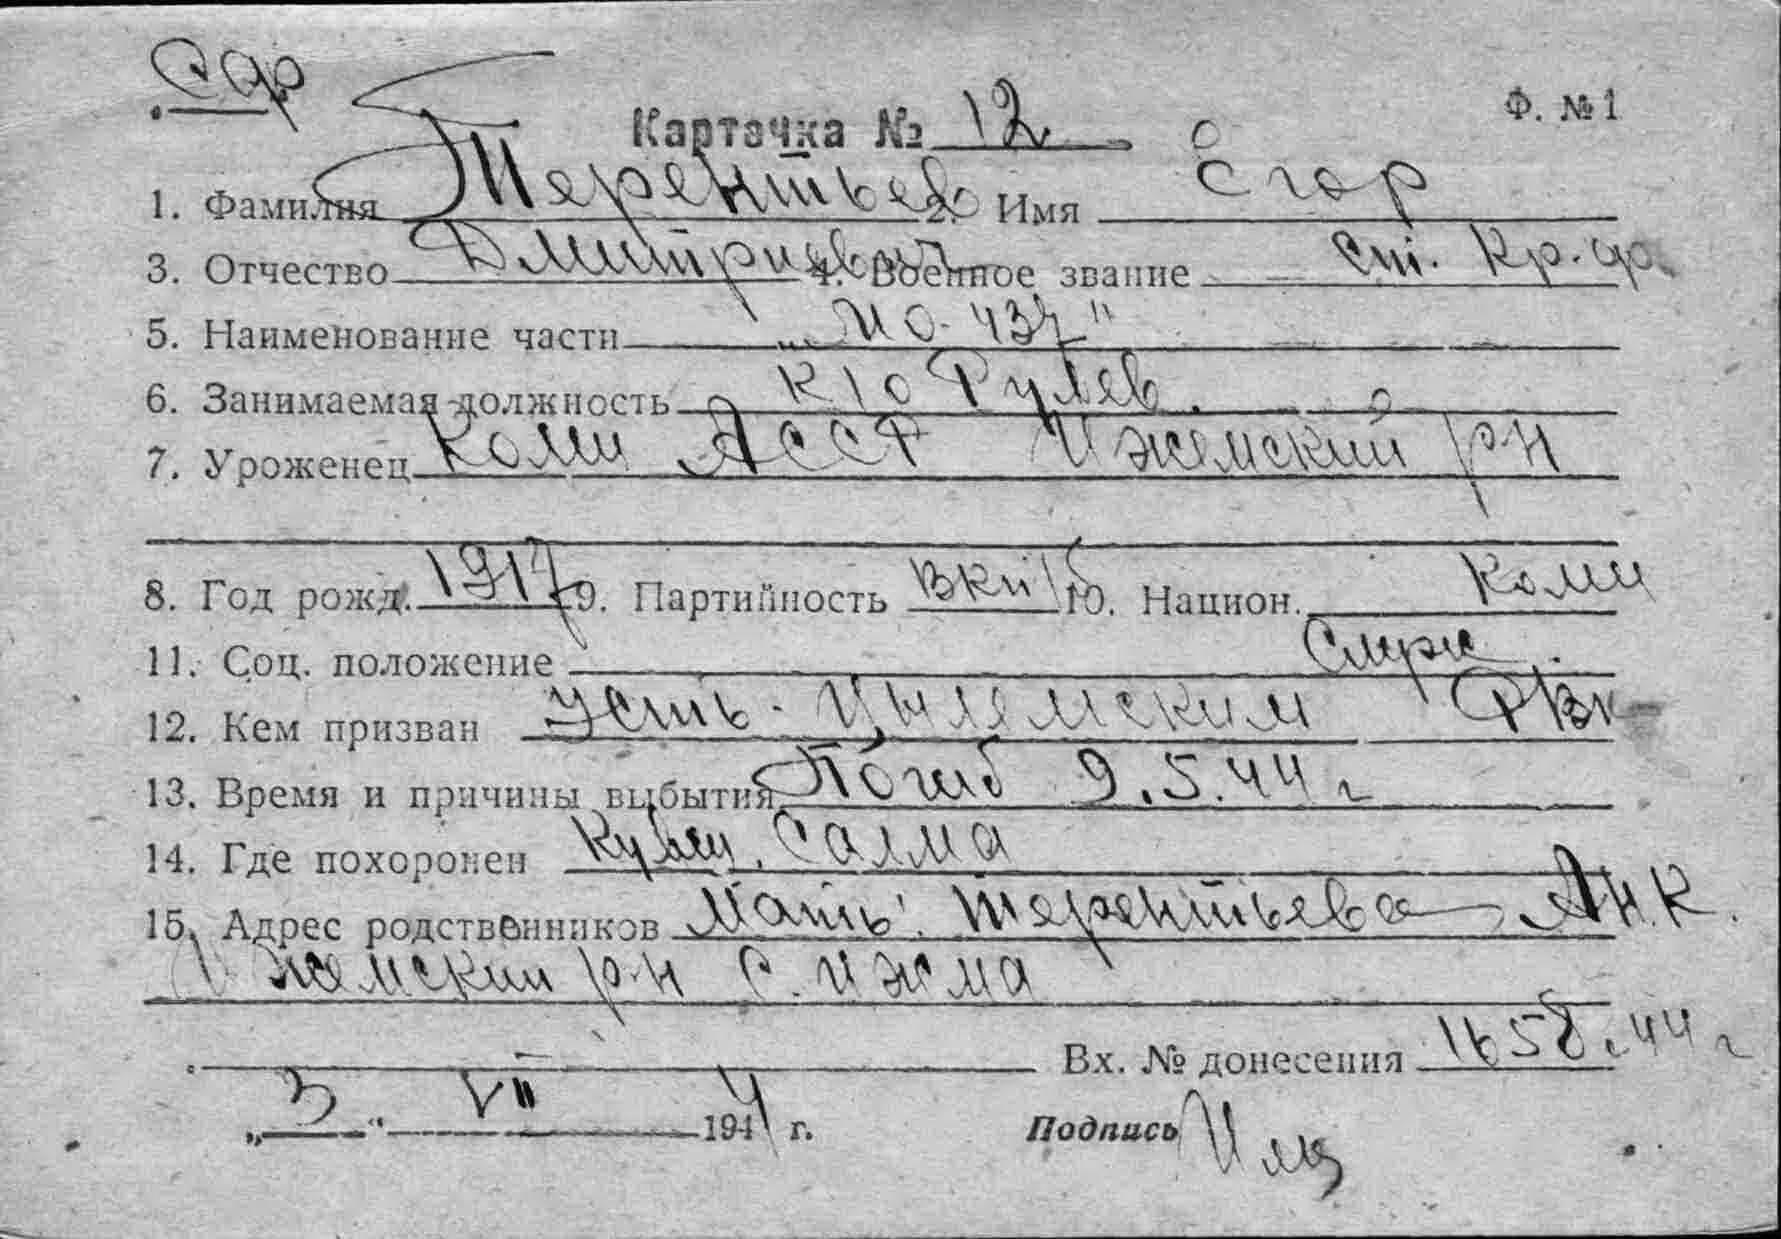 Сф
Ф. №1
Карточка № 12
1. Фамилия Терентьев 2. Имя Егор
3. Отчество Дмитриевич 4. Военное звание Ст. Кр.-ф.
5. Наименование части „МО-437"
6. Занимаемая должность К/О Рулев.
7. Уроженец Коми АССР Ижемский р-н
8. Год рожд. 1917 9. Партийность ВКП/б 10. Национ. Коми
11. Соц. положение Служ.
12. Кем призван Усть-Цылемским РВК
13. Время и причины выбытия Погиб 9.5.44 г
14. Где похоронен Салма
15. Адрес родственников Мать: Терентьева А.К.
Ижемский р-н с. Ижма
Вх. № донесения 1658.44 г
„3" VII 1944 г. Подпись